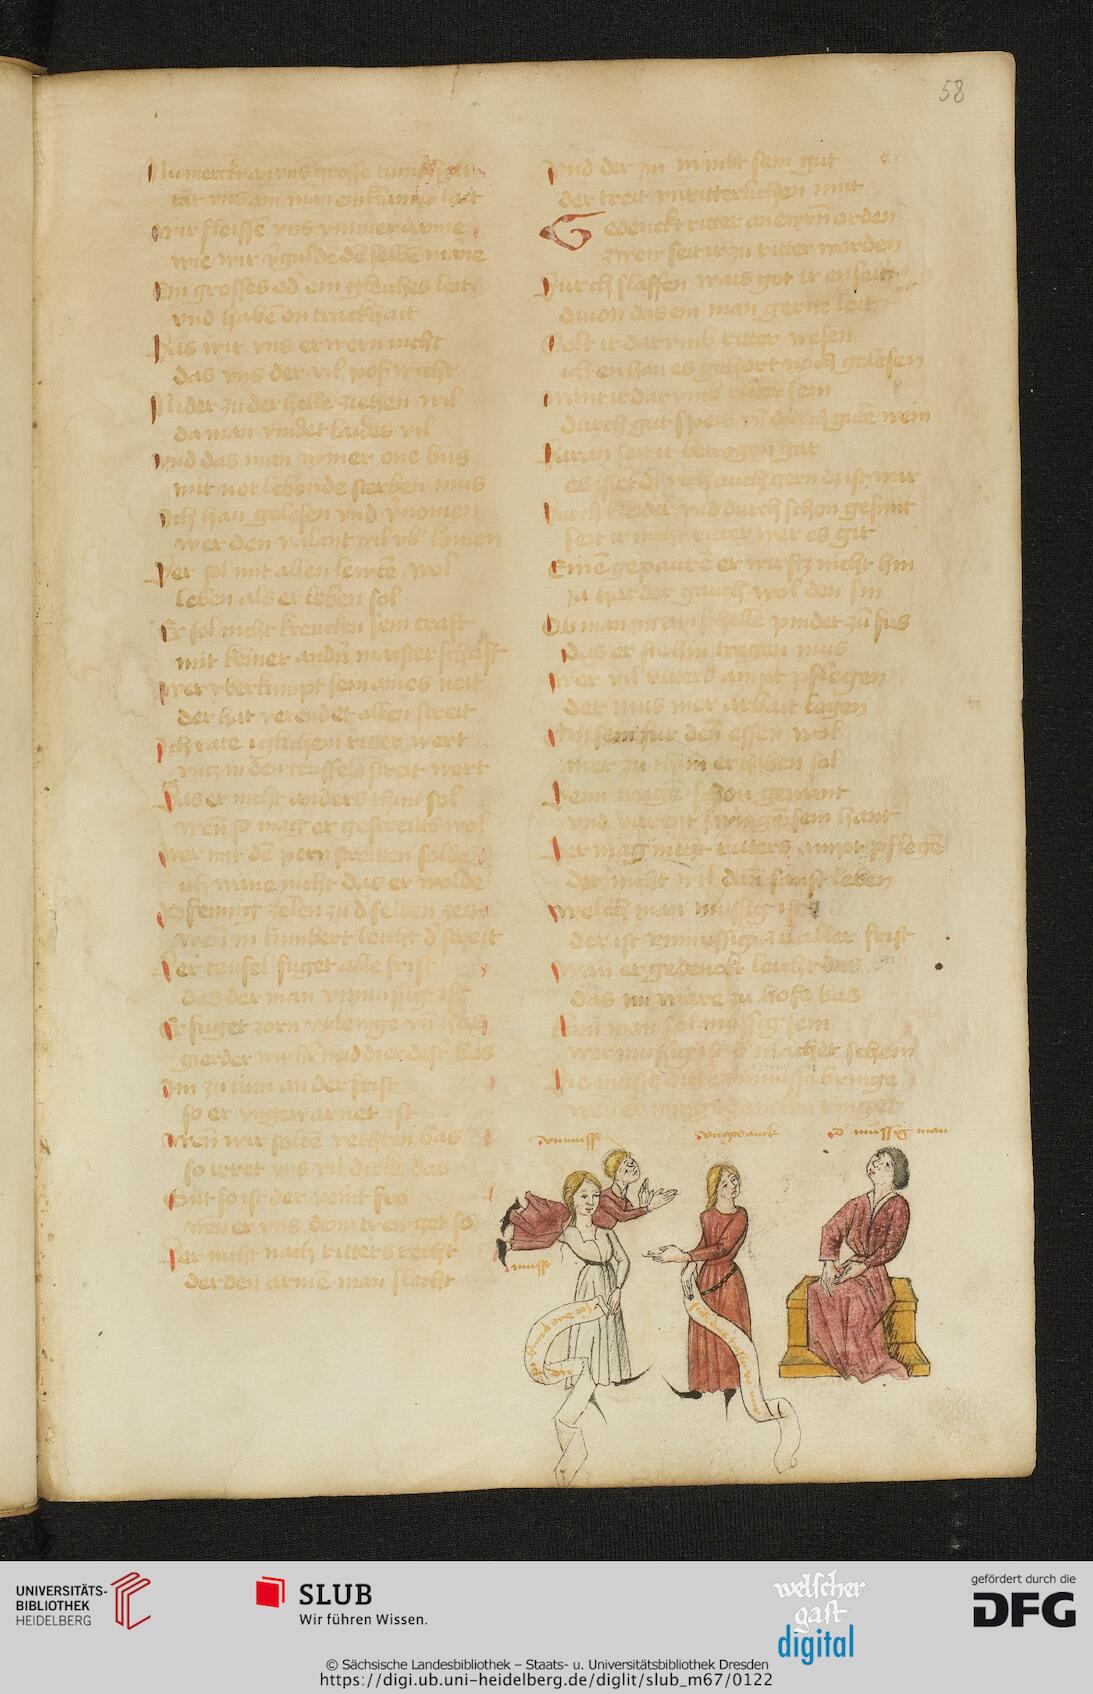 58
Nu merckt wie vns grosse tumphait
tut vns ain man ein klaines lait
wir fleissē vns ymmer dāne
wie wir v̓gulde dē selbē māne
Ein grosses od̓ ein gleiches leit
vnd habē on trackhait
Das wir vns erwern nicht
das vns der vil poswicht
Nider zu der helle ziehen wil
da man vindet laides vil
vnd das man ymer one bus
mit not lebende sterben mus
Ich han gelesen vnd v̓nomen
wer den valant wil vb̓ komen
Der sol mit allen lewtē wol
leben als er leben sol
Er sol nicht krencken sein craft
mit keiner andn̓ maisterschafft
wer vberkumpt sein aines neit
der hat verendet allen streit
Ich rate iglichem ritter wert
vntz in den teuffels streit wert
Das er nicht anders thun sol
wen̄ so mag er gestreitts wol
wer mit dē pern streitten solde
ich mine nicht das er wolde
Pfennig zelen zu d̓ selben zeit
wen̄ in kumbert leicht d̓ streit
Der teufel fuget alle frist
das der man vnmussig ist
Er fuget zorn vrlewge vn̄ has
gierder nucht neid dierdest bas
Im zu tun an der frist
so er vngewarnet ist
wen̄ wir soltē vechten bas
so irret vns vil dicke das
Gut so ist der veint fro
wen er vns dom trewget so
Der nicht nach ritters recht
der den armē man slecht
vnd der im nimbt sein gut
der treit vnritterlichen mut
Gedenckt ritter an ewrn̄ orden
zwew seit ir zu ritter worden
Durch slaffen wais got ir enseit
diuon das ein man gerne leit
Solt ir dar vmb ritter wesen
ich en han es gehort noch gelesen
wānt ir dar vmb ritter sein
durch gut speis vn̄ durch gutē wein
Daran seit ir betrogen gar
es isset dz vich auch gern dz ist war
Durch kleider vnd durch schon gesmit
seit ir nicht ritter wer es git
Einē gepaurē er wirftz nicht hin
ja hat der gauch wol den sin
Ob man im ain schelle pindet zu fus
das er sie hin tragen mus
wer wil ritters ampt pflegen
der mus mer arbait legen
An sein fur den̄ essen wol
mer zu thun er haben sol
Denn tragē schon gewant
vnd varent swinge sein hant
Der mag nicht ritters ampt pflegē
der nicht wil dan̄ sanft leben
welch man mussig ist
der ist vnmussig zu aller frist
wan er gedenckt leicht das
das im were zu hofe bas
kain man sol mussig sein
wer mussig ist d̓ machet schein
Die musse die vnmusse bringe
vnmusse
vngedanck
d̓ mussig man
musse
UNIVERSITÄTS-
BIBLIOTHEK
HEIDELBERG
SLUB
Wir führen Wissen.
welscher
gast
digital
gefördert durch die
DFG
© Sächsische Landesbibliothek – Staats- u. Universitätsbibliothek Dresden
https://digi.ub.uni-heidelberg.de/diglit/slub_m67/0122